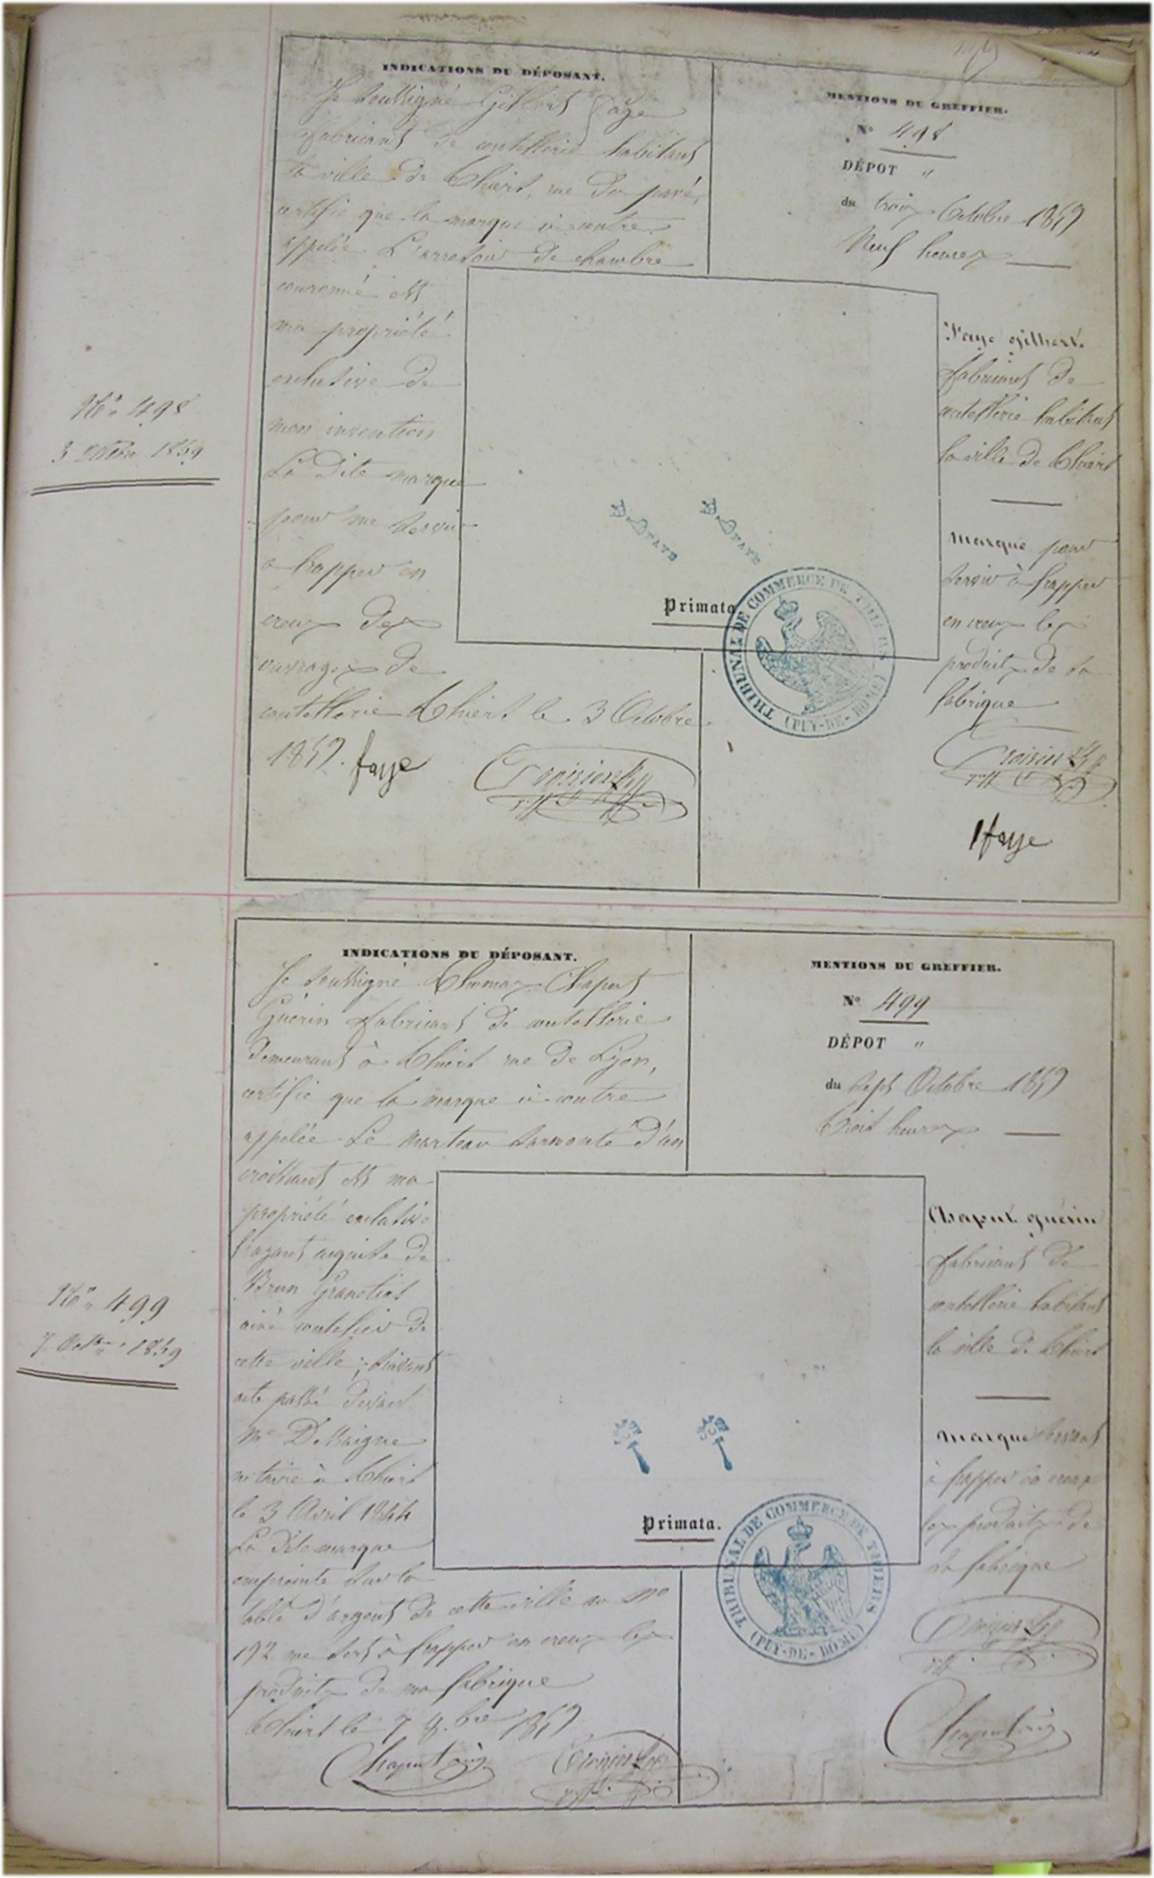 INDICATIONS DU DÉPOSANT.
Je soussigné Gilbert Faye
fabricant de coutellerie habitant
la ville de Thiers, rue du pavé,
certifie que la marque ci contre
appelée L'arrosoir de chambre
couronné est
ma propriété
exclusive de
mon invention
La dite marque
pour me servir
à frapper en
creux des
ouvrages de
coutellerie Thiers le 3 Octobre
1859. faye
MENTIONS DU GREFFIER.
N° 498
DÉPOT "
du trois Octobre 1859
Neuf heures
Faye gilbert
fabricant de
coutellerie habitant
la ville de Thiers
marque pour
servir à frapper
en creux les
produits de sa
fabrique
faye
N° 498
3 1859
FAYE FAYE
Primata
TRIBUNAL DE COMMERCE DE THIERS (PUY-DE-DOME)
INDICATIONS DU DÉPOSANT.
Je soussigné Thomas Chaput
Guérin fabricant de coutellerie
demeurant à Thiers rue de Lyon,
certifie que la marque ci contre
appelée Le marteau surmonté d'un
croissant est ma
propriété exclusive
l'ayant acquise de
Brun
ainé coutelier de
cette ville, suivant
acte passé devant
Me
notaire à Thiers
le 3 Avril 1844
La dite marque
empreinte sur la
table d'argent de cette ville au no
192 me sert à frapper en creux les
produits de ma fabrique
Thiers le 7 8.bre 1859
MENTIONS DU GREFFIER.
N° 499
DÉPOT "
du sept Octobre 1859
trois heures
Chaput guérin
fabricant de
coutellerie habitant
la ville de Thiers
marque servant
à frapper en creux
les produits de
sa fabrique
N° 499
7 1859
Primata.
TRIBUNAL DE COMMERCE DE THIERS (PUY-DE-DOME)